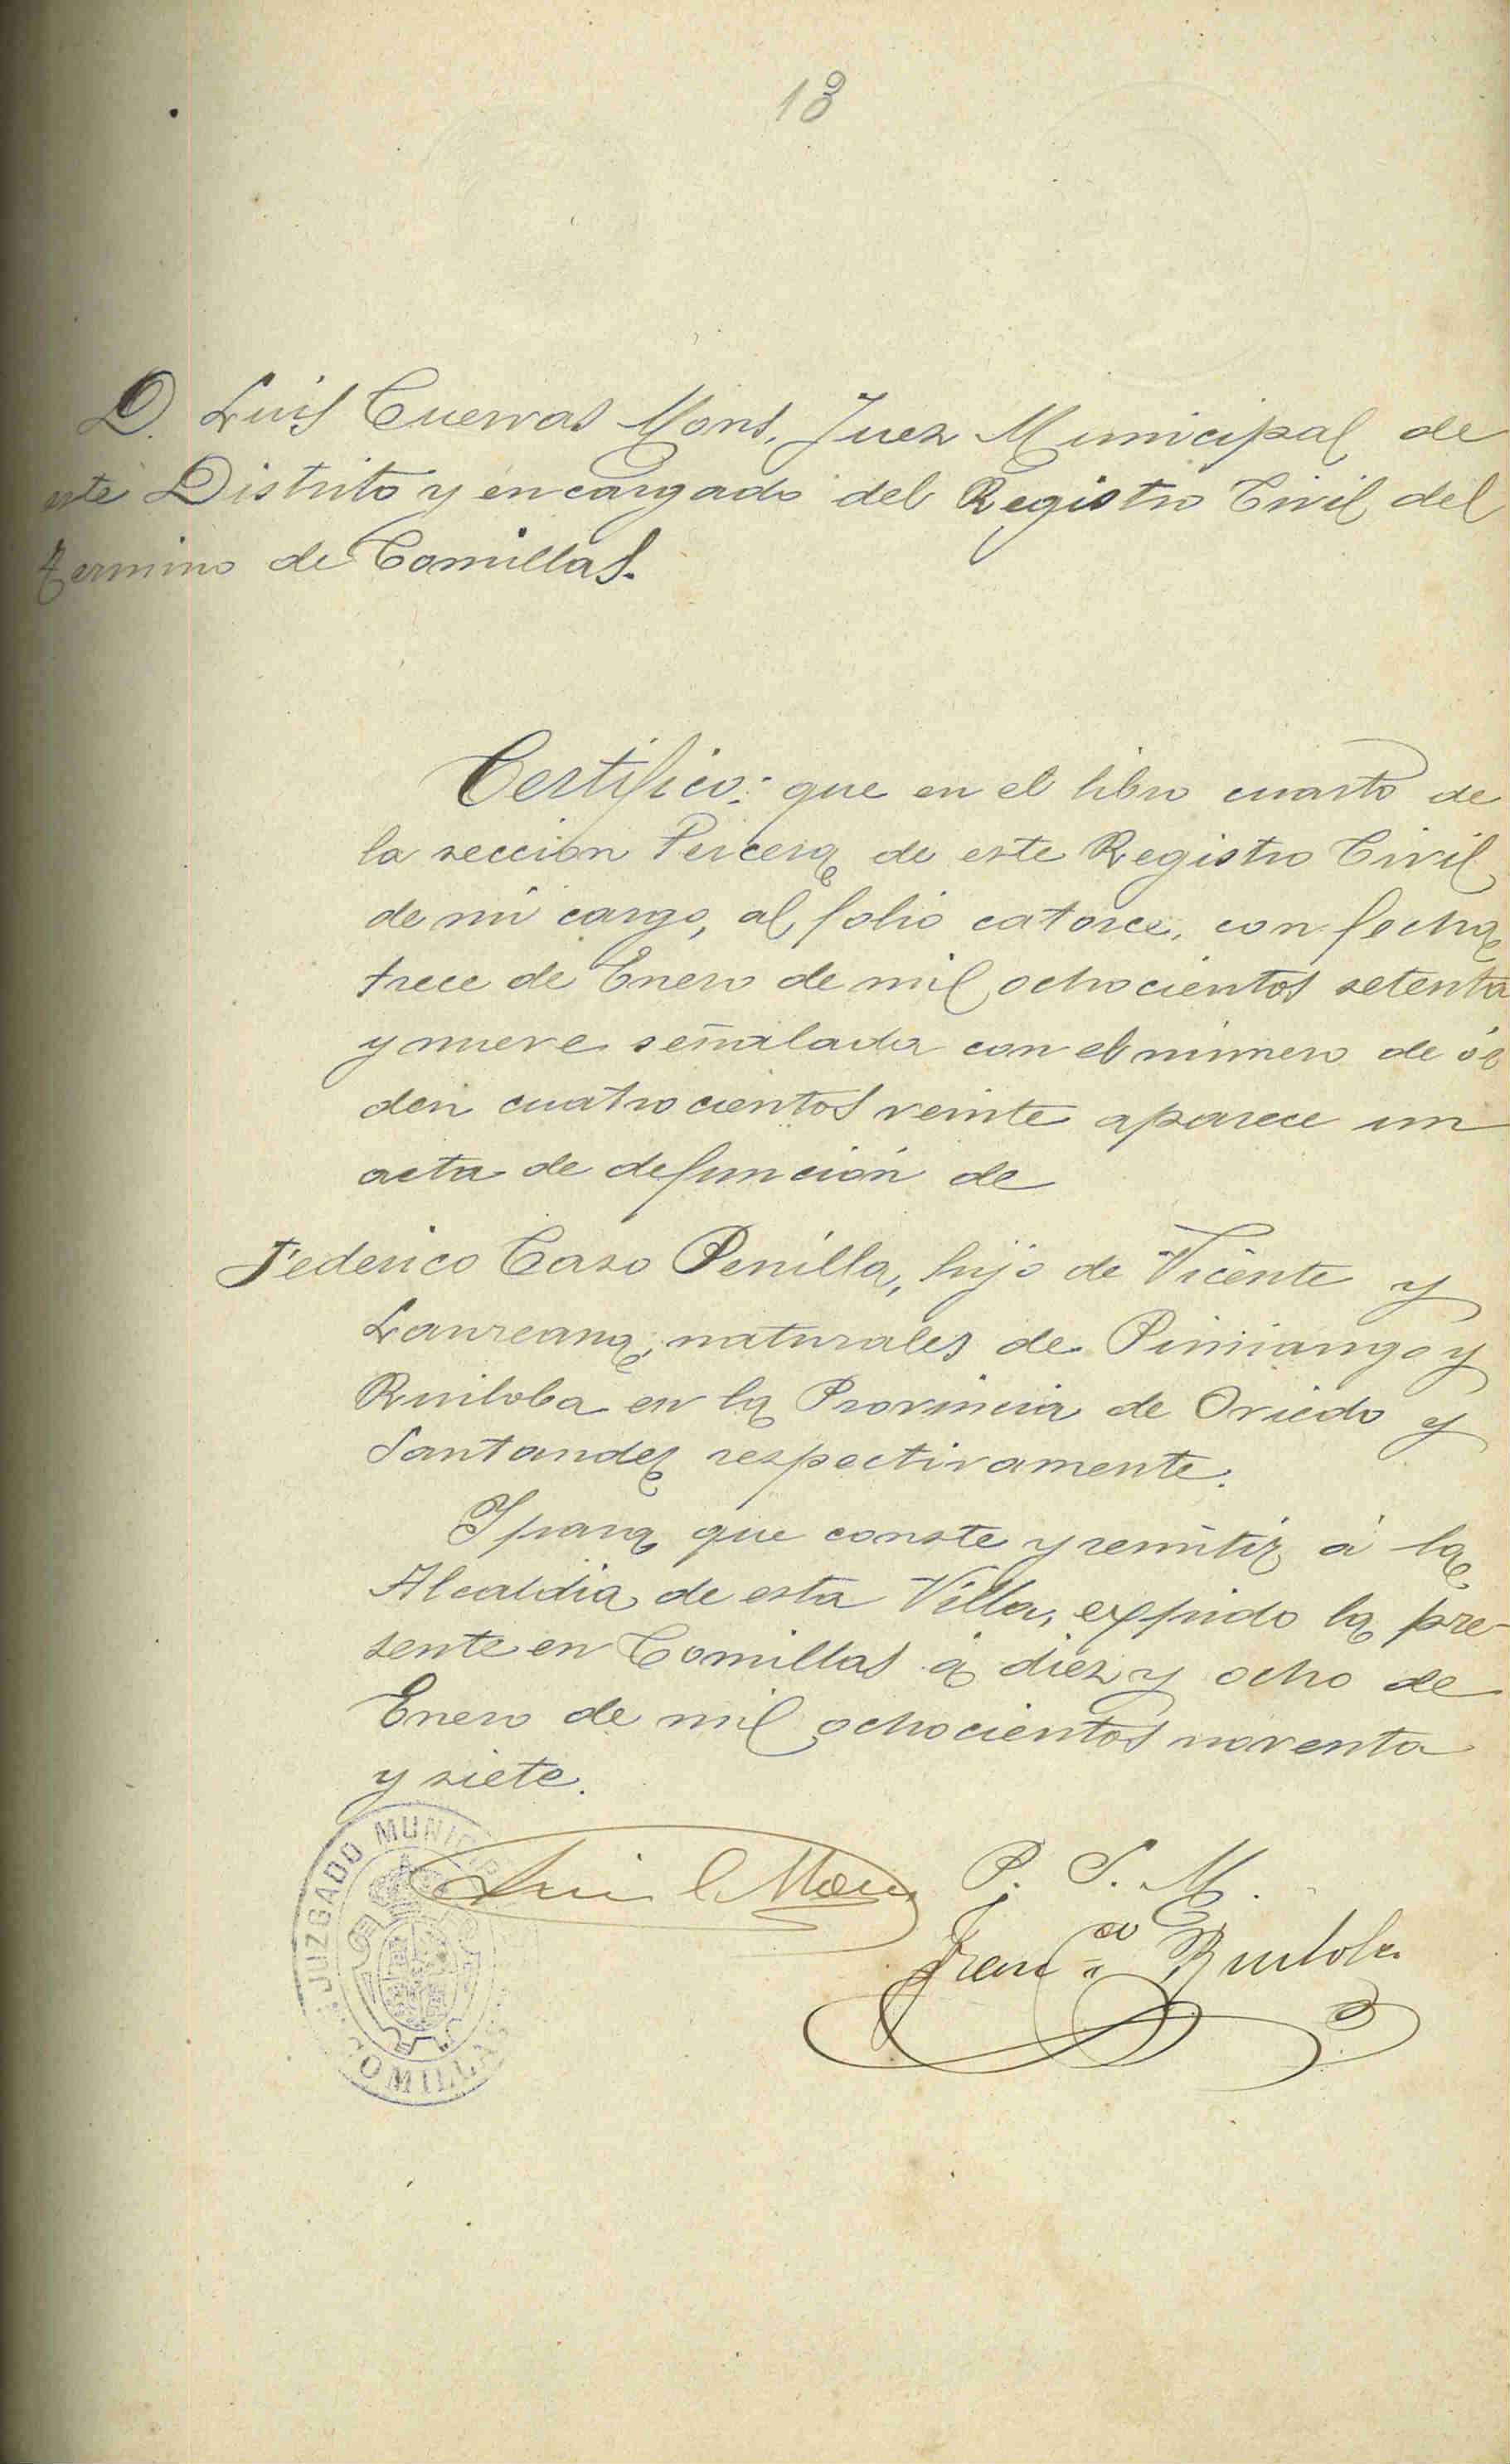 13
D. Luis Cuevas Mons, Juez Municipal de
este Distrito y encargado del Registro Civil del
termino de Comillas.
Certifico: que en el libro cuarto de
la seccion Tercera de este Registro Civil
de mi cargo, al folio catorce, con fecha
trece de Enero de mil ochocientos setenta
y nueve señalada con el número de ór
den cuatrocientos veinte aparece un
acta de defunción de
Federico Caso Penilla, hijo de Vicente y
Laureana, naturales de Pimiango y
Ruiloba en la Provincia de Oviedo y
Santander respectivamente.
Y para que conste y remitir á la
Alcaldia de esta Villa, expido la pre-
sente en Comillas á diez y ocho de
Enero de mil ochocientos noventa
y siete.
JUZGADO MUNICIPAL
COMILLAS
Luis C. Mons
P. S. M.
Fran.co Ruiloba